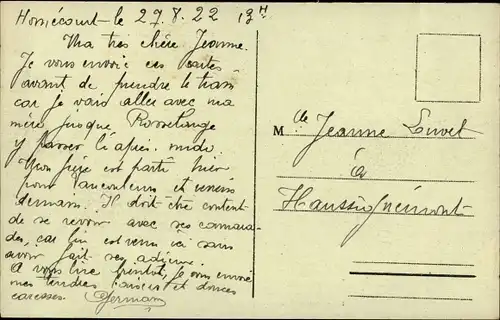 Homécourt le 27.8.22 19H
Ma très chère Jeanne.
Je vous envoie ces cartes
avant de prendre le tram
car je vais aller avec ma
mère jusque Rosselange
y passer l'après. midi.
Mon frère est parti hier
pour et
demain. Il doit être content
de se revoir avec ses camara-
des, car lui est venu ici sans
avoir fait ses adieux.
A vous lire bientôt, je vous envoie
mes tendres baisers et douces
caresses. Germain
Mlle Jeanne
à
Haussignémont